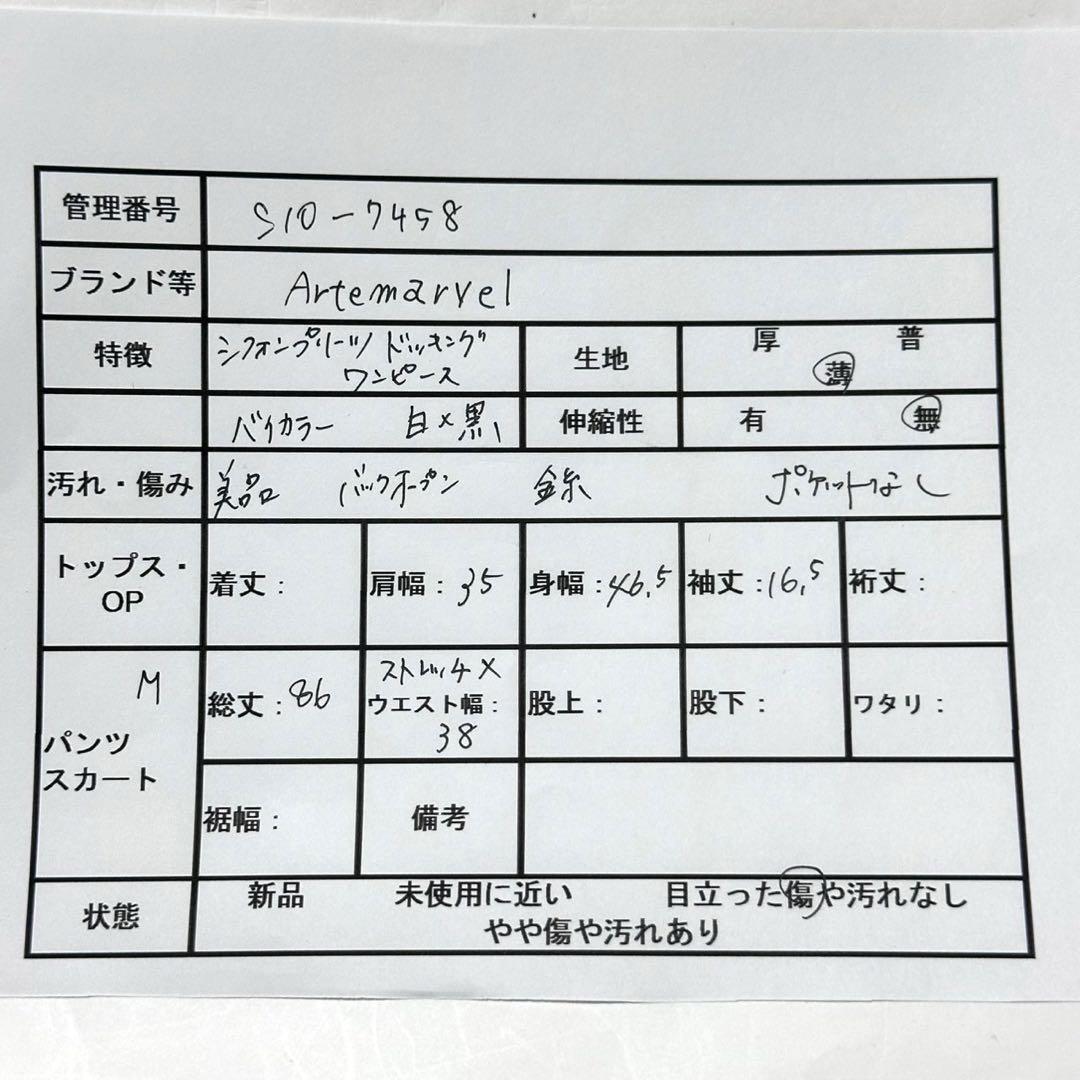 管理番号 S10-7458
ブランド等 Artemarvel
特徴 シフォンプリーツ ドッキング
ワンピース 生地 厚 普
薄
バイカラー 白×黒 伸縮性 有 無
汚れ・傷み 美品 バックオープン ポケットなし
トップス・
OP 着丈： 肩幅：35 身幅：46.5 袖丈：16.5 裄丈：
M ストレッチ×
総丈：86 ウエスト幅：
38 股上： 股下： ワタリ：
パンツ
スカート
裾幅： 備考
状態 新品 未使用に近い 目立った傷や汚れなし
やや傷や汚れあり